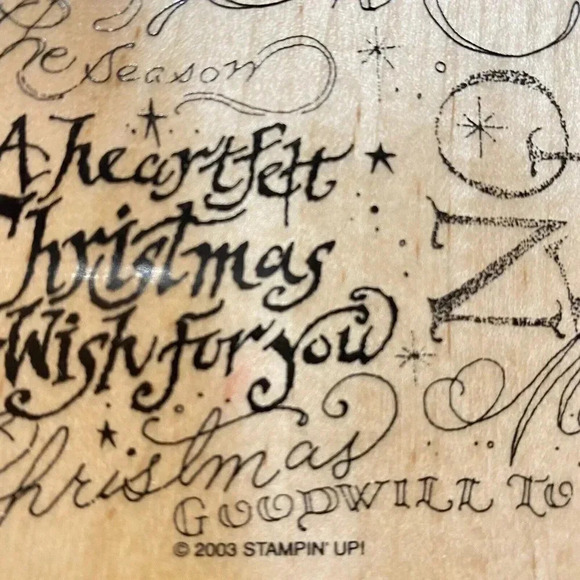 he Season
A heartfelt
Christmas
Wish for you
Christmas
GOODWILL TO
© 2003 STAMPIN' UP!